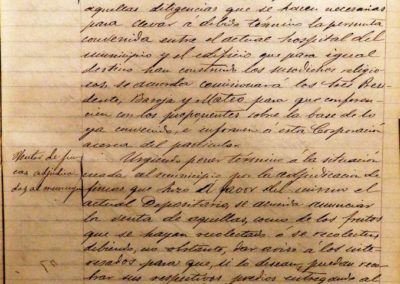 aquellas diligencias que se hacen necesarias
para llevar á debido término la permuta
convenida entre el actual hospital del
municipio y el edificio que para igual
destino han construido los susodichos religio
sos, se acuerda comisionar á los Sres Presi
dente, Baroja y Mateo para que conferen
cien con los proponentes sobre la base de lo
ya convenido, é informen á esta Corporación
acerca del particular.
Ventas de fin
cas adjudica
das al municipio
Urgiendo poner término á la situación
creada al municipio por la adjudicación de
fincas que hizo á favor del mismo el
actual Depositario, se acuerda anunciar
la venta de aquellas, como de los frutos
que se hayan recolectado ó se recolecten,
debiendo, no obstante, dar aviso á los inte
resados para que, si lo desean, puedan reco
brar sus respectivos predios entregando al